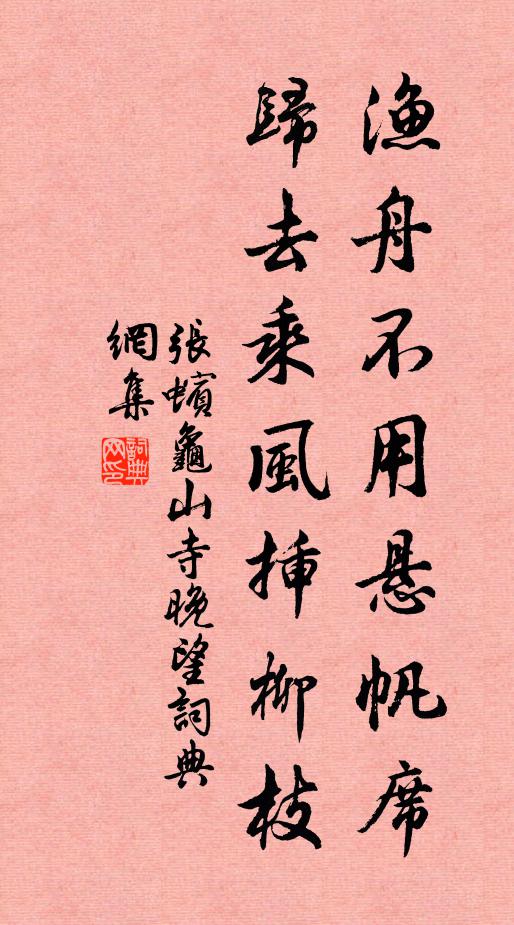 漁舟不用悬帆席
歸去乘風揷柳枝
張蠙龜山寺晚望詞典
網集
詞典網印